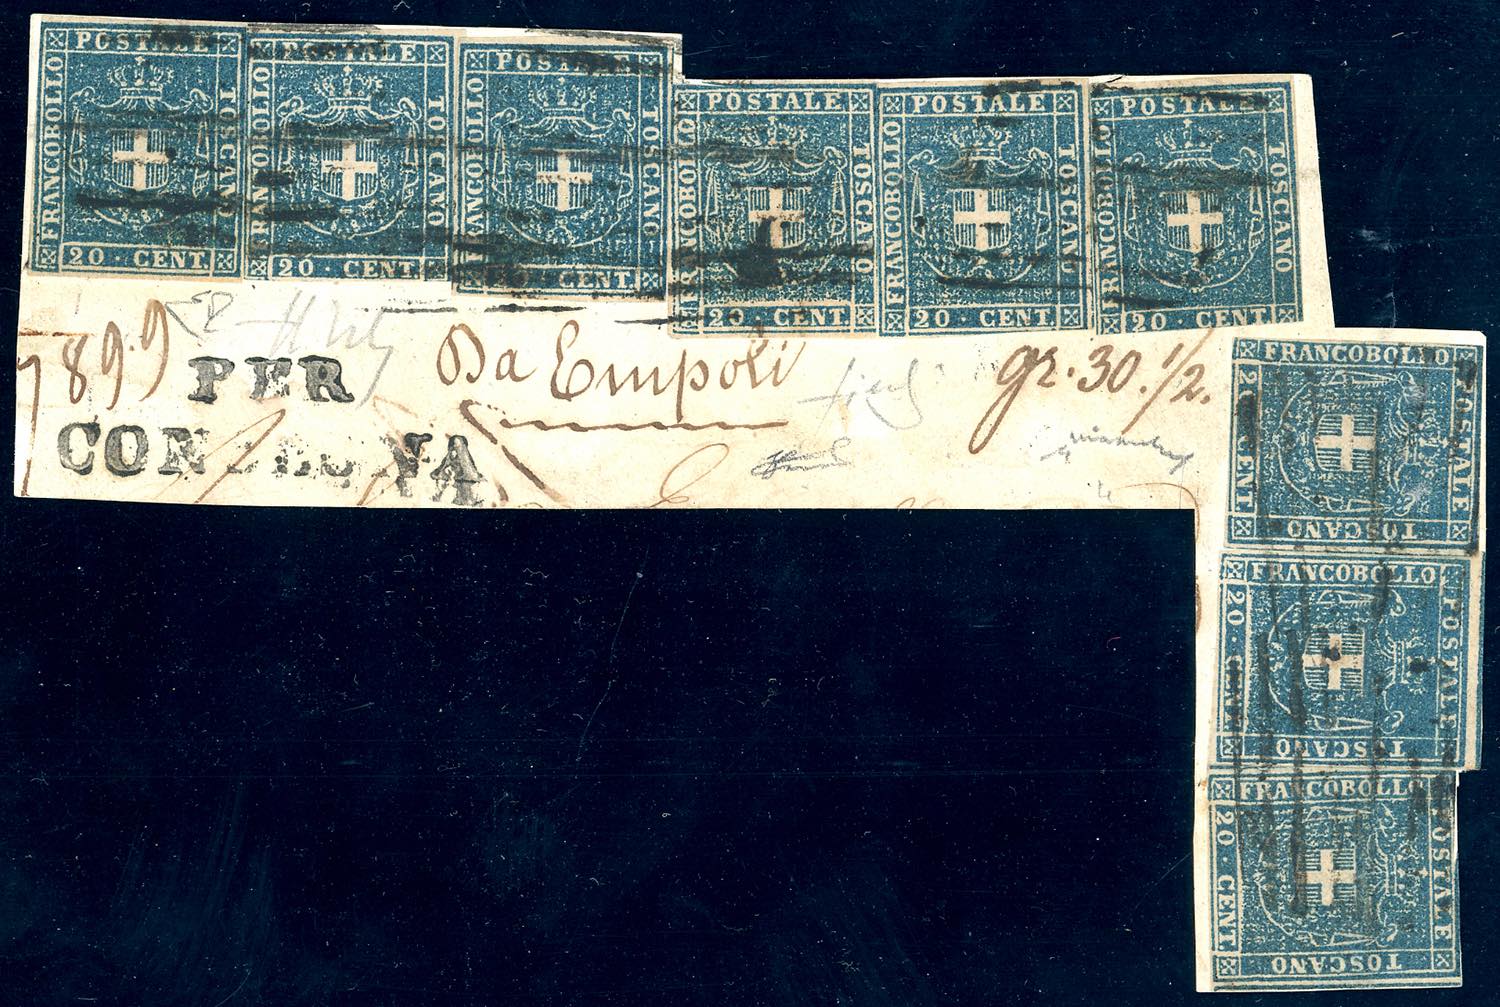 POSTALE FRANCOBOLLO TOSCANO 20 · CENT.
POSTALE FRANCOBOLLO TOSCANO 20 · CENT.
POSTALE FRANCOBOLLO TOSCANO 20 · CENT.
POSTALE FRANCOBOLLO TOSCANO 20 · CENT.
POSTALE FRANCOBOLLO TOSCANO 20 · CENT.
POSTALE FRANCOBOLLO TOSCANO 20 · CENT.
899
PER
Da Empoli
gr. 30. 1/2.
FRANCOBOLLO POSTALE 20 · CENT. TOSCANO
FRANCOBOLLO POSTALE 20 · CENT. TOSCANO
FRANCOBOLLO POSTALE 20 · CENT. TOSCANO